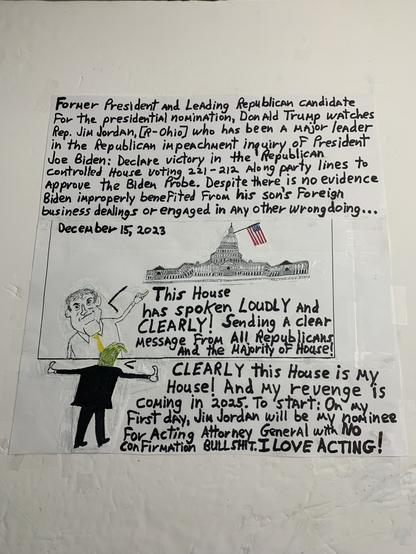 Former President and Leading Republican candidate
For the presidential nomination, Donald Trump watches
Rep. Jim Jordan, [R-Ohio] who has been a major leader
in the Republican impeachment inquiry of President
Joe Biden: Declare victory in the Republican
controlled House voting 221-212 Along party lines to
Approve the Biden Probe. Despite there is no evidence
Biden improperly benefited From his son's Foreign
business dealings or engaged in any other wrongdoing...
December 15, 2023
This House
has spoken LOUDLY and
CLEARLY! Sending a clear
message From All Republicans
And the Majority of House!
CLEARLY this House is My
House! And my revenge is
coming in 2025. To start: On my
First day, Jim Jordan will be my nominee
For Acting Attorney General with NO
confirmation BULLSHIT. I LOVE ACTING!